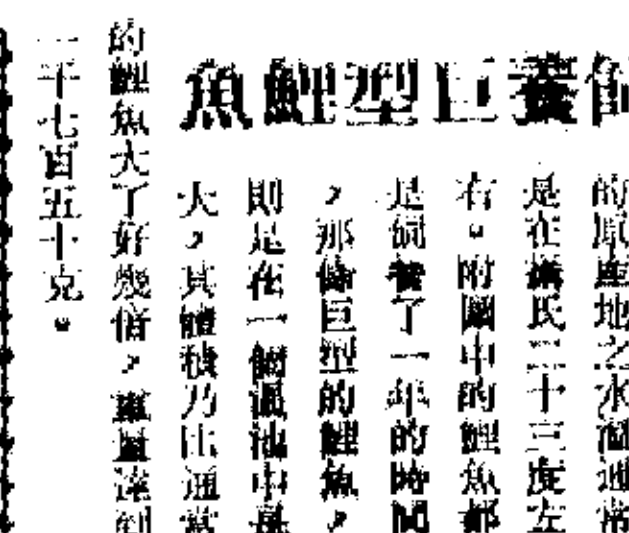 飼養巨型鯉魚
的原產地之水溫通常
是在攝氏二十三度左
右。附圖中的鯉魚都
是飼養了一年的時間
，那條巨型的鯉魚，
則是在一個溫池中長
大，其體積乃比通常
的鯉魚大了好幾倍，重量達到
一千七百五十克。